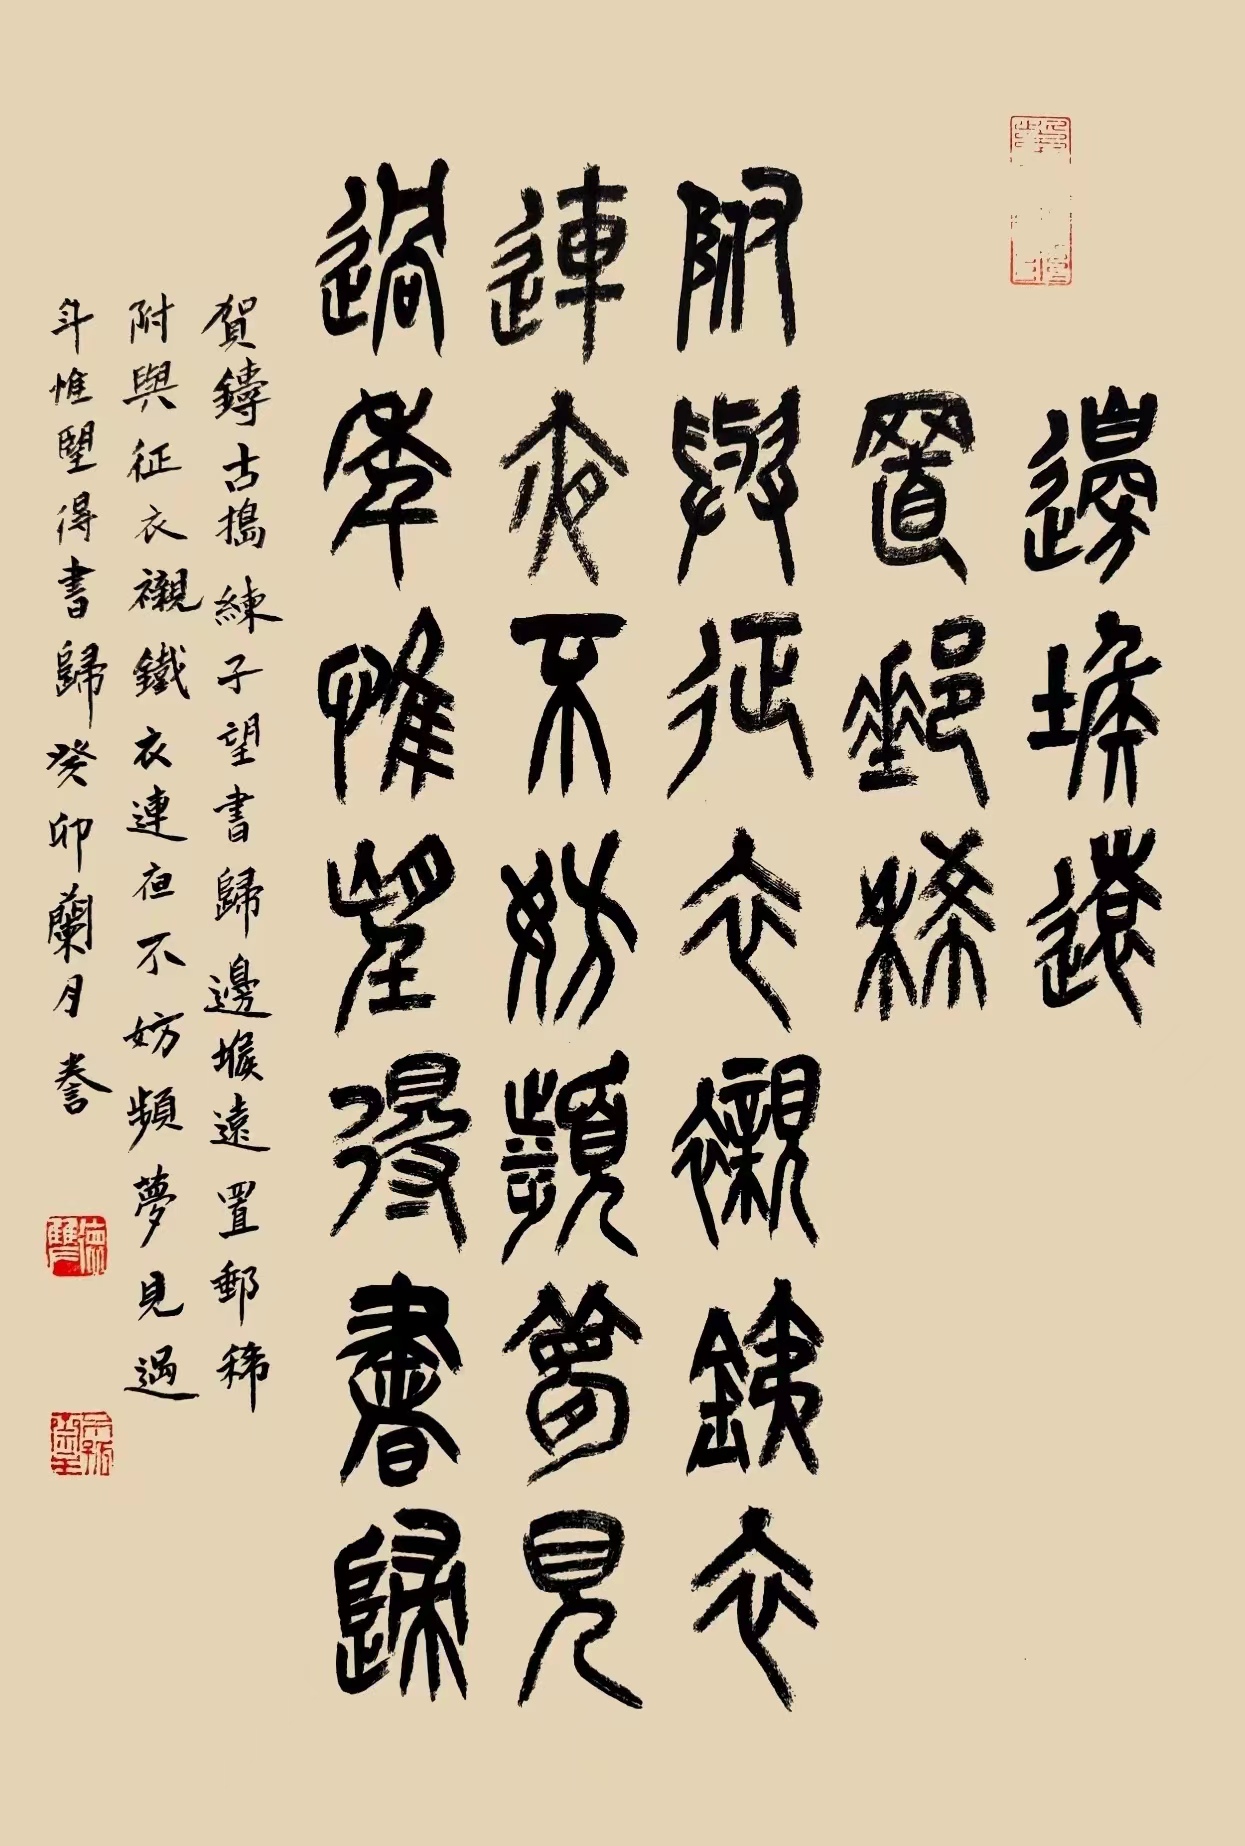 邊堠遠
置郵稀
附與征衣襯鐵衣
連夜不妨頻夢見
過年惟望得書歸
賀鑄古搗練子望書歸邊堠遠置郵稀
附與征衣襯鐵衣連夜不妨頻夢見過
年惟望得書歸癸卯蘭月謄